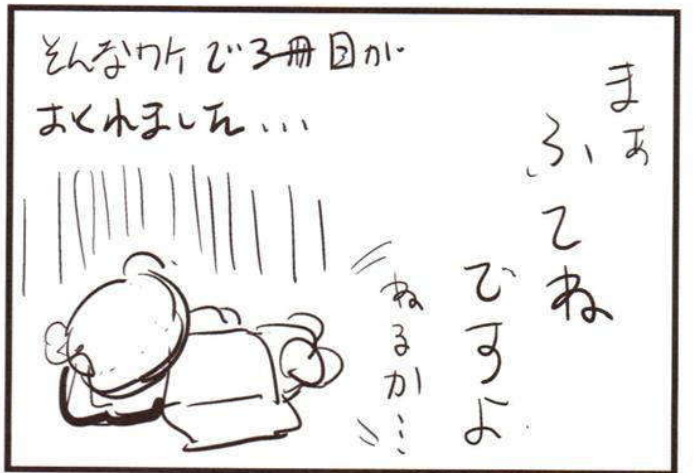 そんなワケで3冊目が
おくれました...
まぁ
ふてね
ですよ
ねるか...